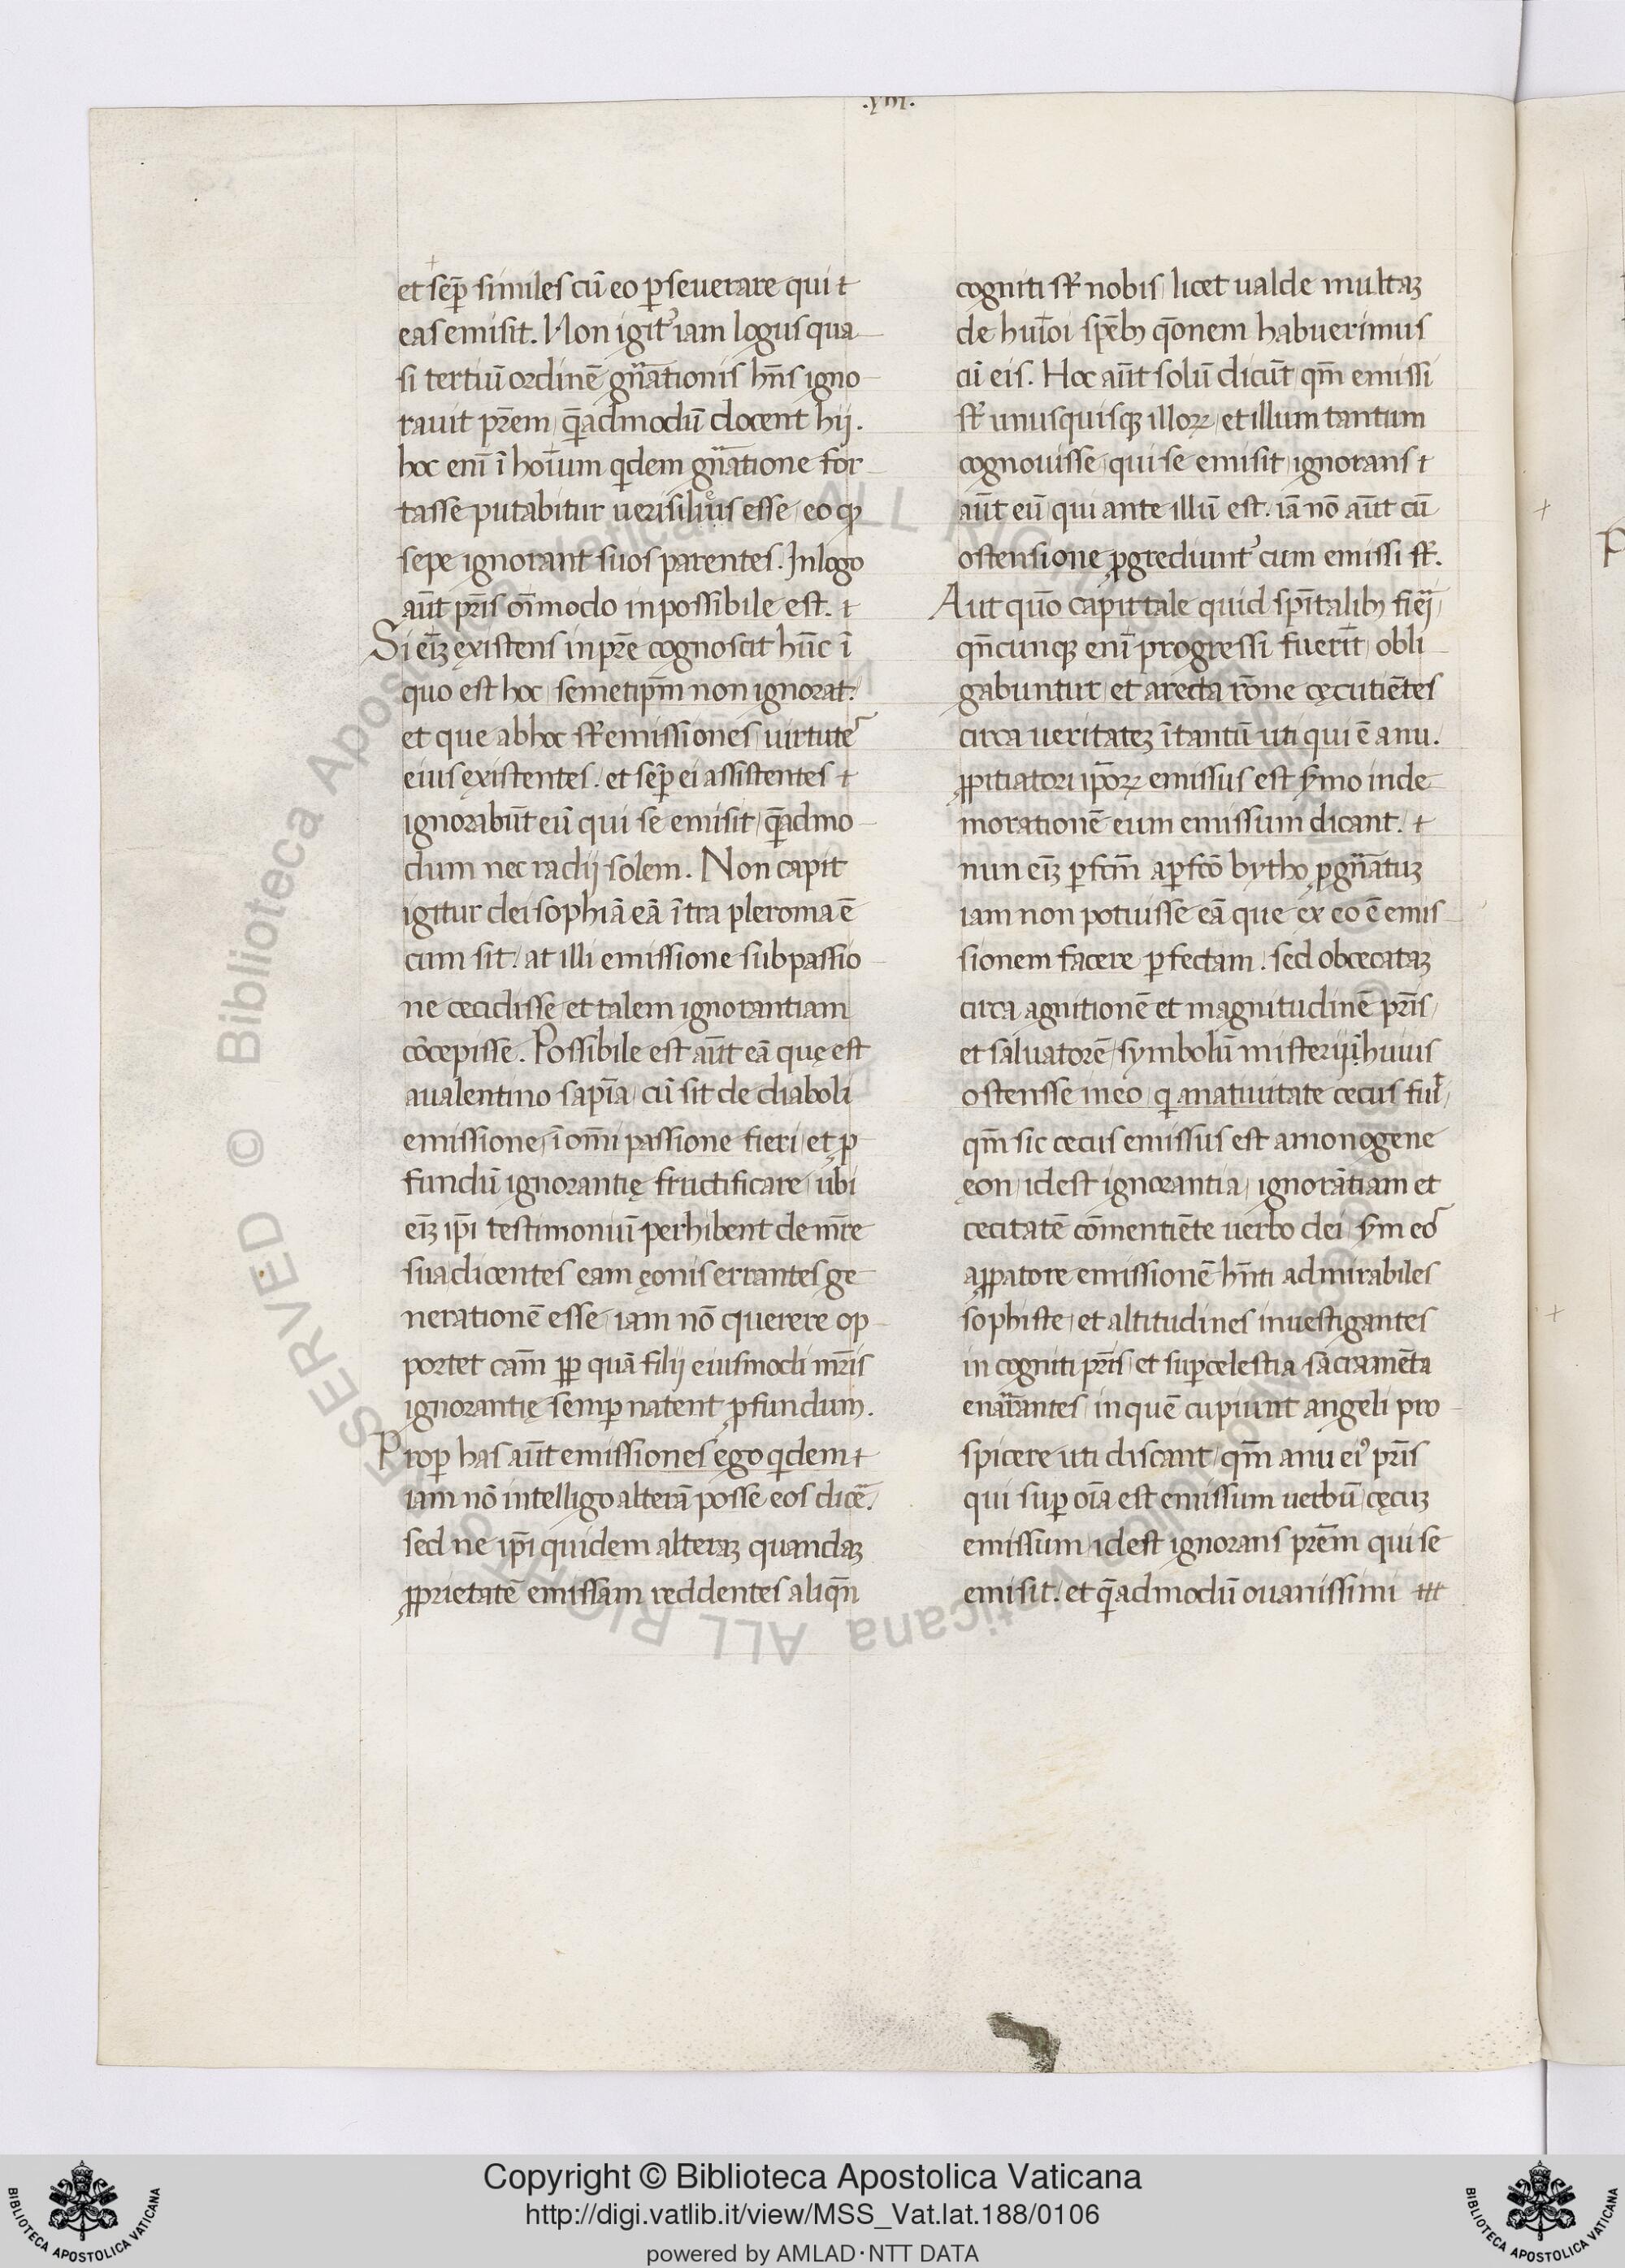 .VIII.
et sēp̄ similes cū eo ꝑseuerare qui t
eas emisit. Non igit᷑ iam logus qua
si tertiū ordinē gn̄ationis hn̄s igno
rauit pr̄em q̄admodū docent hij.
hoc enī ī hoīum qͥdem gn̄atione for
tasse putabitur uerisilius esse eo ꝙ
sepe ignorant suos parentes. In logo
aūt pr̄is om̄imodo inpossibile est. t
Si eīꝫ ęxistens in pr̄e cognoscit hūc ī
quo est hoc semetip̄m non ignorat.
et que ab hoc st̄ emissiones uirtute᷑
eius ęxistentes. et sēp̄ ei assistentes t
ignorabūt eū qui se emisit q̄admo
dum nec radij solem. Non capit
igitur dei sophiā eā ītra pleroma ē
cum sit. at illi emissione sub passio
ne cecidisse et talem ignorantiam
cōcepisse. Possibile est aūt eā quę est
aualentino sapīa cū sit de diaboli
emissione ī om̄i passione fieri et ꝓ
fundū ignorantię fructificare ubi
eīꝫ ip̄i testimoniū perhibent de mr̄e
sua dicentes eam ęonis errantes ge
nerationē esse iam nō querere op
portet cam̄ ꝓp̱ quā filij eiusmodi mr̄is
ignorantię semꝑ natent ꝓfundum.
Prop̱ has aūt emissiones ego qͥdem t
iam nō intelligo alterā posse eos dicē.
sed ne ip̄i quidem alteraꝫ quandaꝫ
ꝓprietatē emissam reddentes aliqn̄
cogniti st̄ nobis licet ualde multaꝫ
de hui᷑oi spēbꝫ qōnem habuerimus
cū eis. Hoc aūt solū dicūt qm̄ emissi
st̄ unusquisqꝫ illoꝝ et illum tantum
cognouisse qui se emisit ignorans t
aūt eū qui ante illū est. iā nō aūt cū
ostensione ꝓgrediunt᷑ cum emissi st̄.
Aut quō capit tale quid spītalibꝫ fieri
qn̄cunqꝫ enī progressi fuerīt obli
gabuntur et arecta rōne cęcutiētes
circa ueritateꝫ ītantū uti qui ē a nu.
ꝓpitiatori ip̄oꝝ emissus est s̄mo inde
morationē eum emissum dicant. t
nun eīꝫ ꝑfcm̄ aꝑfc̄o bytho ꝓgn̄atuꝫ
iam non potuisse eā que ex eo ē emis
sionem facere ꝑfectam. sed obcecataꝫ
circa agnitionē et magnitudinē pr̄is
et saluatorē symbolū misterij huius
ostensse in eo qͥ anatiuitate cecus fuī
qm̄ sic cecus emissus est amonogene
ęon id est ignorantia ignorātiam et
cecitatē cōmentiēte uerbo dei s̄m eo᷑
aꝓpatore emissionē hn̄ti admirabiles
sophiste et altitudines inuestigantes
in cogniti pr̄is et suꝑcelestia sacramēta
enarrantes in quē cupiunt angeli pro
spicere uti discant qm̄ anu eiꝰ pr̄is
qui suꝑ oīa est emissum uerbū cęcuꝫ
emissum id est ignorans pr̄em qui se
emisit. et q̄admodū ouanissimi
Copyright © Biblioteca Apostolica Vaticana
http://digi.vatlib.it/view/MSS_Vat.lat.188/0106
powered by AMLAD·NTT DATA